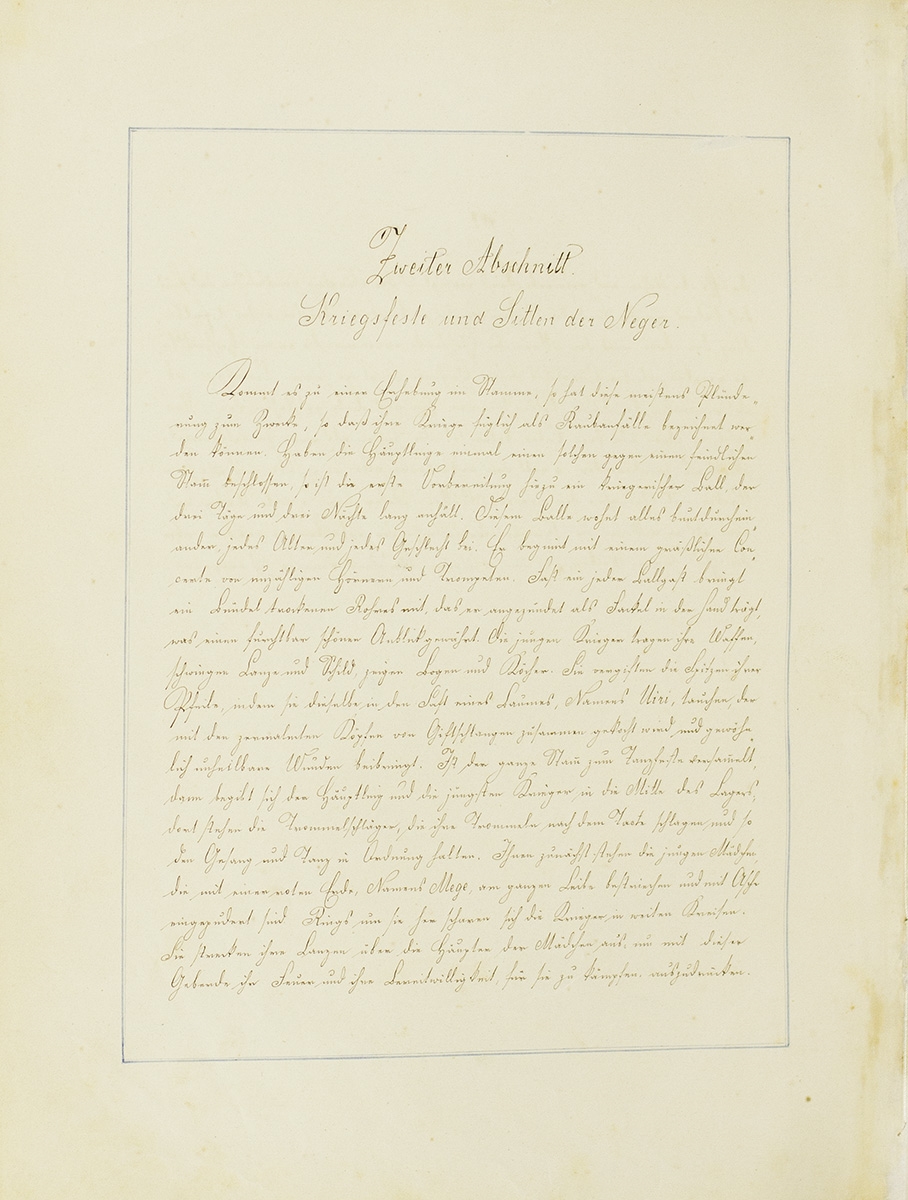 Zweiter Abschnitt.
Kriegsfeste und Sitten der Neger.
Kommt es zu einer Erhebung im Stamme, so hat diese meistens Plünde-
rung zum Zwecke, so daß ihre Kriege füglich als Raubanfälle bezeichnet wer-
den können. Haben die Häuptlinge einmal einen solchen gegen einen feindlichen
Stam̅ beschlossen, so ist die erste Vorbereitung hiezu ein kriegerischer Ball, der
drei Tage und drei Nächte lang anhält. Diesem Balle wohnt alles bunt durchein-
ander, jedes Alter und jedes Geschlecht bei. Er beginnt mit einem gräßlichen Con-
certe von unzähligen Hörnern und Trompeten. Fast ein jeder Ballgast bringt
ein Bündel trockenen Rohres mit, das er angezündet als Fackel in der Hand trägt,
was einen furchtbar schönen Anblick gewährt. Die jungen Krieger tragen ihre Waffen,
schwingen Lanze und Schild, zeigen Bogen und Köcher. Sie vergiften die Spitzen ihrer
Pfeile, indem sie dieselbe in den Saft eines Baumes, Namens Uiri, tauchen, der
mit den zermalmten Köpfen von Giftschlangen zusammen gekocht wird und gewöhn-
lich unheilbare Wunden beibringt. Ist der ganze Stam̅ zum Tanzfeste versam̅elt,
dann begibt sich der Häuptling und die jüngsten Krieger in die Mitte des Lagers,
dort stehen die Trommelschläger, die ihre Trommeln nach dem Tacte schlagen und so
den Gesang und Tanz in Ordnung halten. Ihnen zunächst stehen die jungen Mädchen,
die mit einer roten Erde, Namens Mege, am ganzen Leibe bestrichen und mit Asche
eingepudert sind. Rings um sie her scharen sich die Krieger in weiten Kreisen.
Sie strecken ihre Lanzen über die Häupter der Mädchen aus, um mit dieser
Geberde ihr Feuer und ihre Bereitwilligkeit, für sie zu kämpfen, auszudrücken.